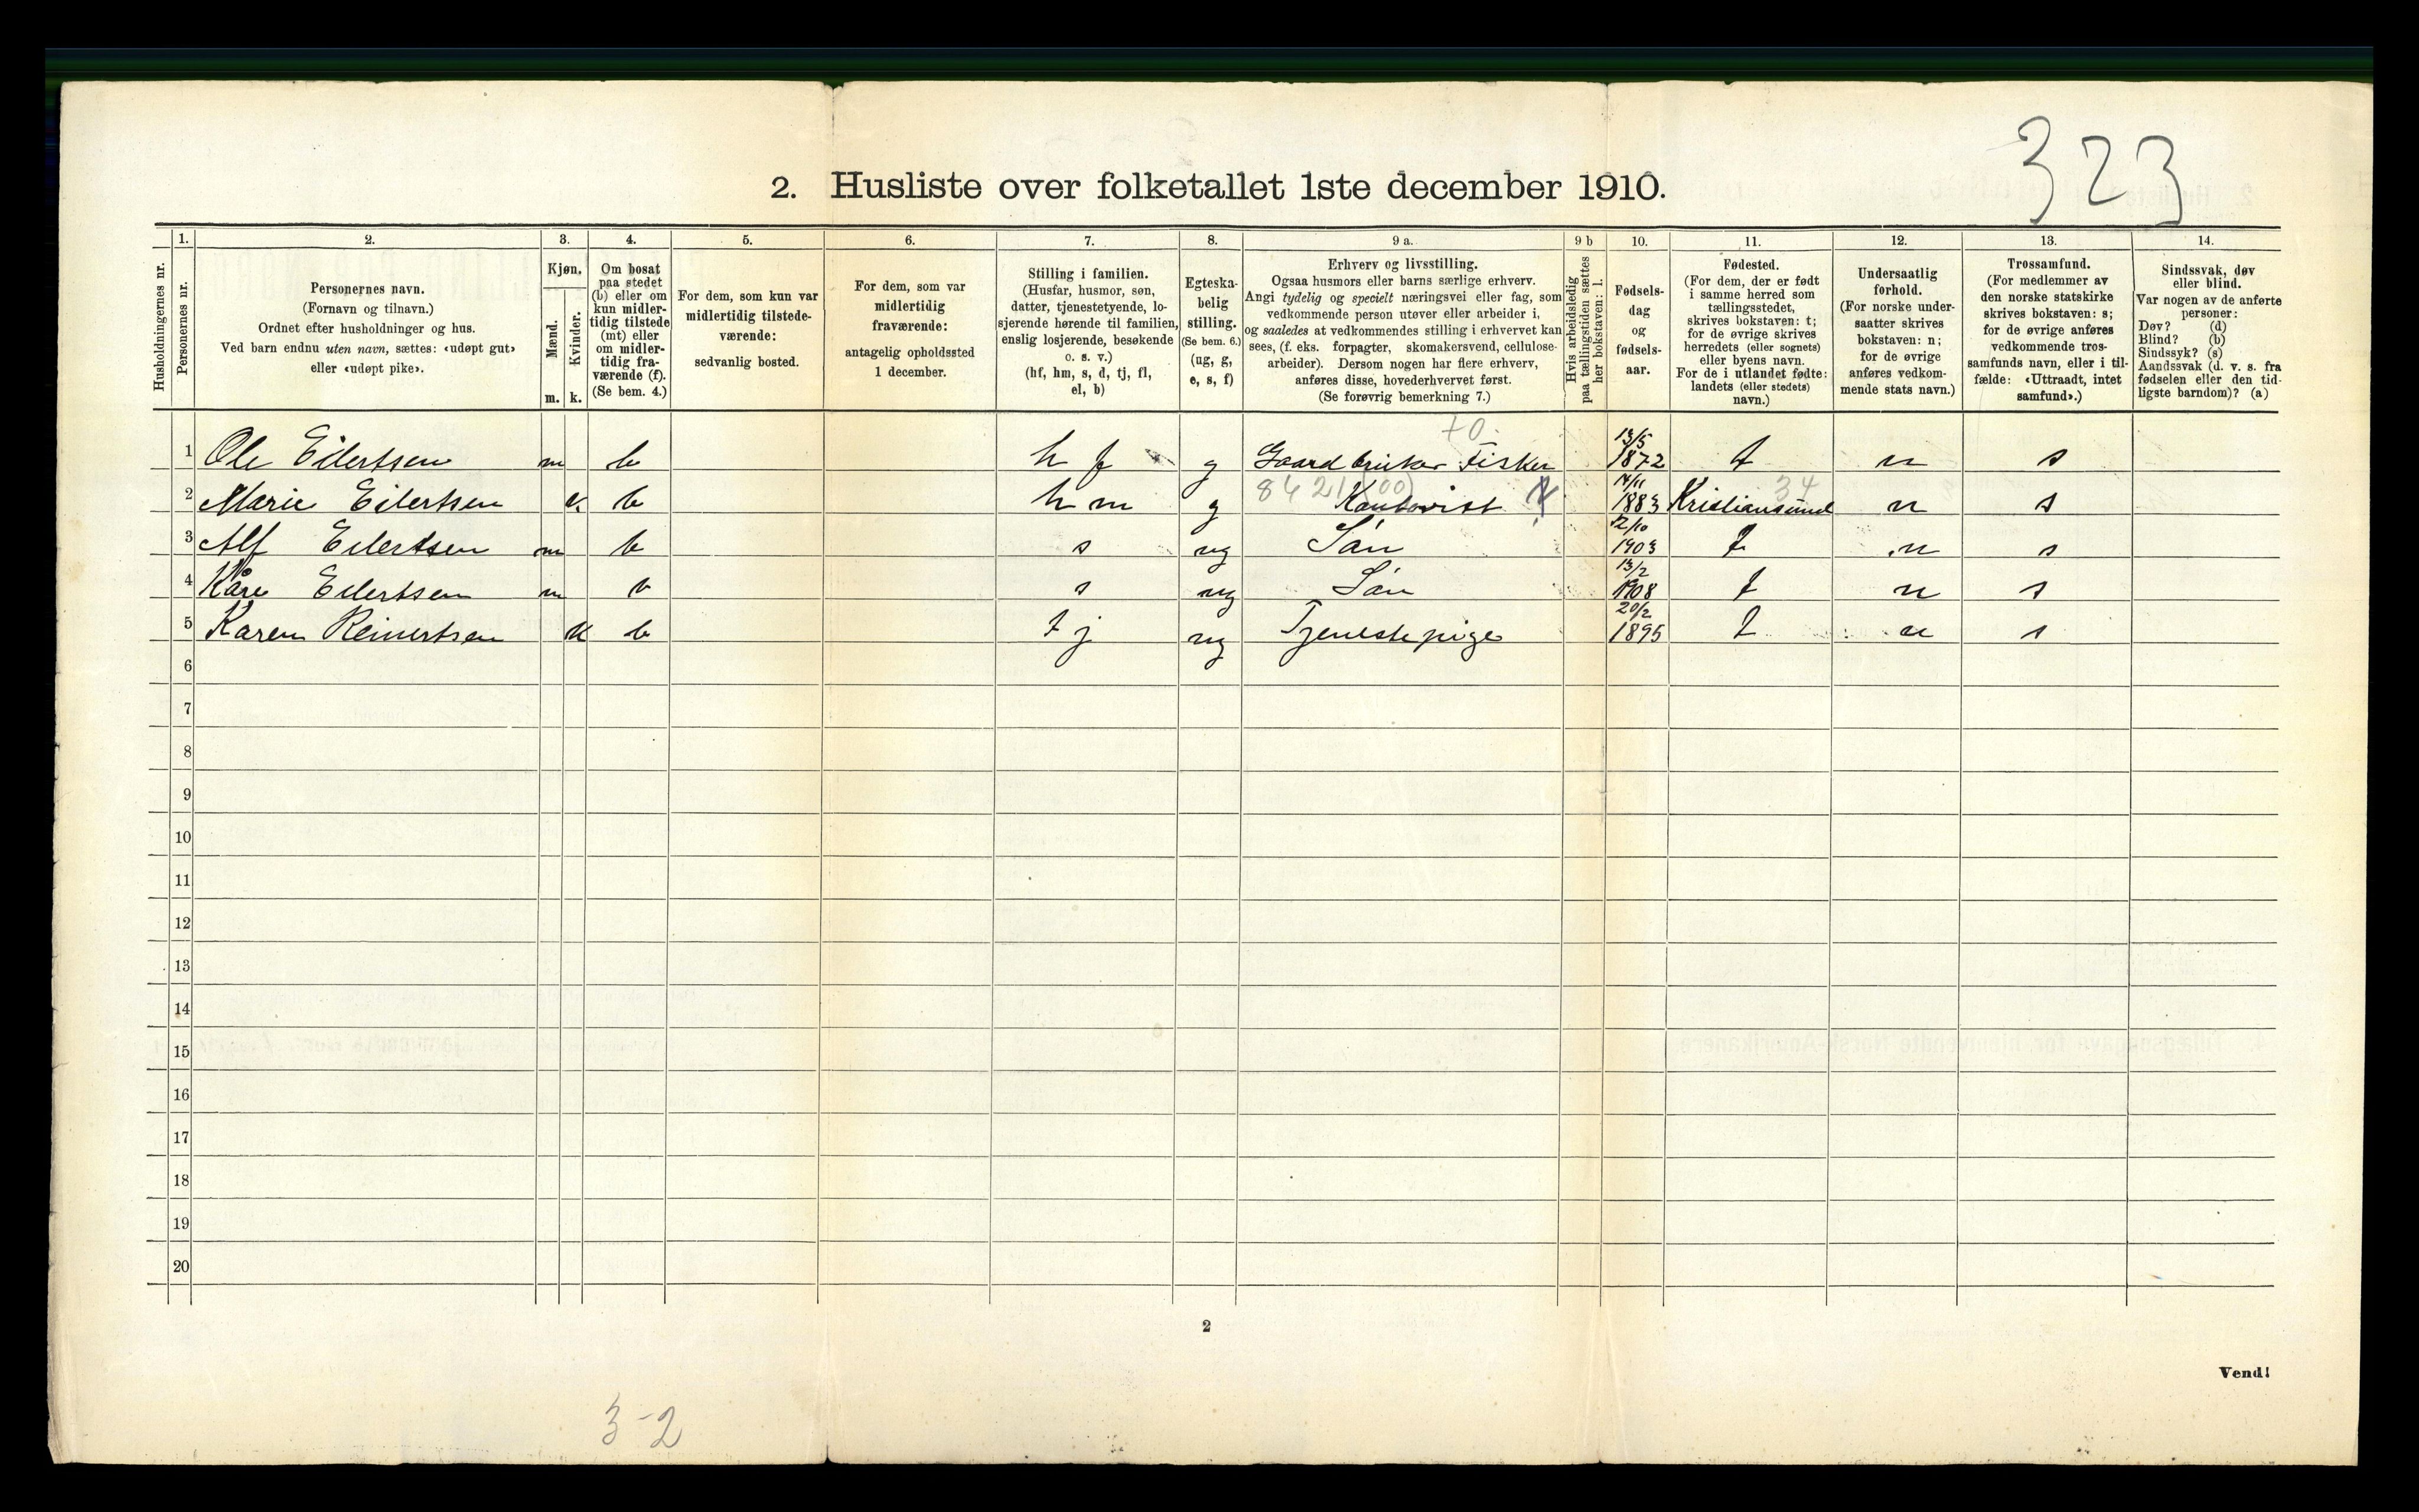 323
2. Husliste over folketallet 1ste december 1910.
Husholdningernes nr.
1.
Personernes nr.
2.
Personernes navn.
(Fornavn og tilnavn.)
Ordnet efter husholdninger og hus.
Ved barn endnu uten navn, sættes: «udøpt gut»
eller «udøpt pike».
3.
Kjøn.
Mænd.
Kvinder.
m. k.
4.
Om bosat
paa stedet
(b) eller om
kun midler-
tidig tilstede
(mt) eller
om midler-
tidig fra-
værende (f).
(Se bem. 4.)
5.
For dem, som kun var
midlertidig tilstede-
værende:
sedvanlig bosted.
6.
For dem, som var
midlertidig
fraværende:
antagelig opholdssted
1 december.
7.
Stilling i familien.
(Husfar, husmor, søn,
datter, tjenestetyende, lo-
sjerende hørende til familien,
enslig losjerende, besøkende
o. s. v.)
(hf, hm, s, d, tj, fl,
el, b)
8.
Egteska-
belig
stilling.
(Se bem. 6.)
(ug, g,
e, s, f)
9 a.
Erhverv og livsstilling.
Ogsaa husmors eller barns særlige erhverv.
Angi tydelig og specielt næringsvei eller fag, som
vedkommende person utøver eller arbeider i,
og saaledes at vedkommendes stilling i erhvervet kan
sees, (f. eks. forpagter, skomakersvend, cellulose-
arbeider). Dersom nogen har flere erhverv,
anføres disse, hovederhvervet først.
(Se forøvrig bemerkning 7.)
9 b
Hvis arbeidsledig
paa tællingstiden sættes
her bokstaven: l.
10.
Fødsels-
dag
og
fødsels-
aar.
11.
Fødested.
(For dem, der er født
i samme herred som
tællingsstedet,
skrives bokstaven: t;
for de øvrige skrives
herredets (eller sognets)
eller byens navn.
For de i utlandet fødte:
landets (eller stedets)
navn.)
12.
Undersaatlig
forhold.
(For norske under-
saatter skrives
bokstaven: n;
for de øvrige
anføres vedkom-
mende stats navn.)
13.
Trossamfund.
(For medlemmer av
den norske statskirke
skrives bokstaven: s;
for de øvrige anføres
vedkommende tros-
samfunds navn, eller i til-
fælde: «Uttraadt, intet
samfund».)
14.
Sindssvak, døv
eller blind.
Var nogen av de anførte
personer:
Døv? (d)
Blind? (b)
Sindssyk? (s)
Aandssvak (d. v. s. fra
fødselen eller den tid-
ligste barndom)? (a)
1 Ole Eilertsen m b h f g Gaardbruker Fisker 13/5 1872 t n s
2 Marie Eilertsen k b h m g 14/11 1883 Kristiansund 34 n s
3 Alf Eilertsen m b s ug Sön 1903 t n s
4 Kåre Eilertsen m b s ug Sön 13/2 1908 t n s
5 Karen Reinertsen k b t j ug Tjenestepige 20/2 1895 t n s
6
7
8
9
10
11
12
13
14
15
16
17
18
19
20
2
Vend!
3-2